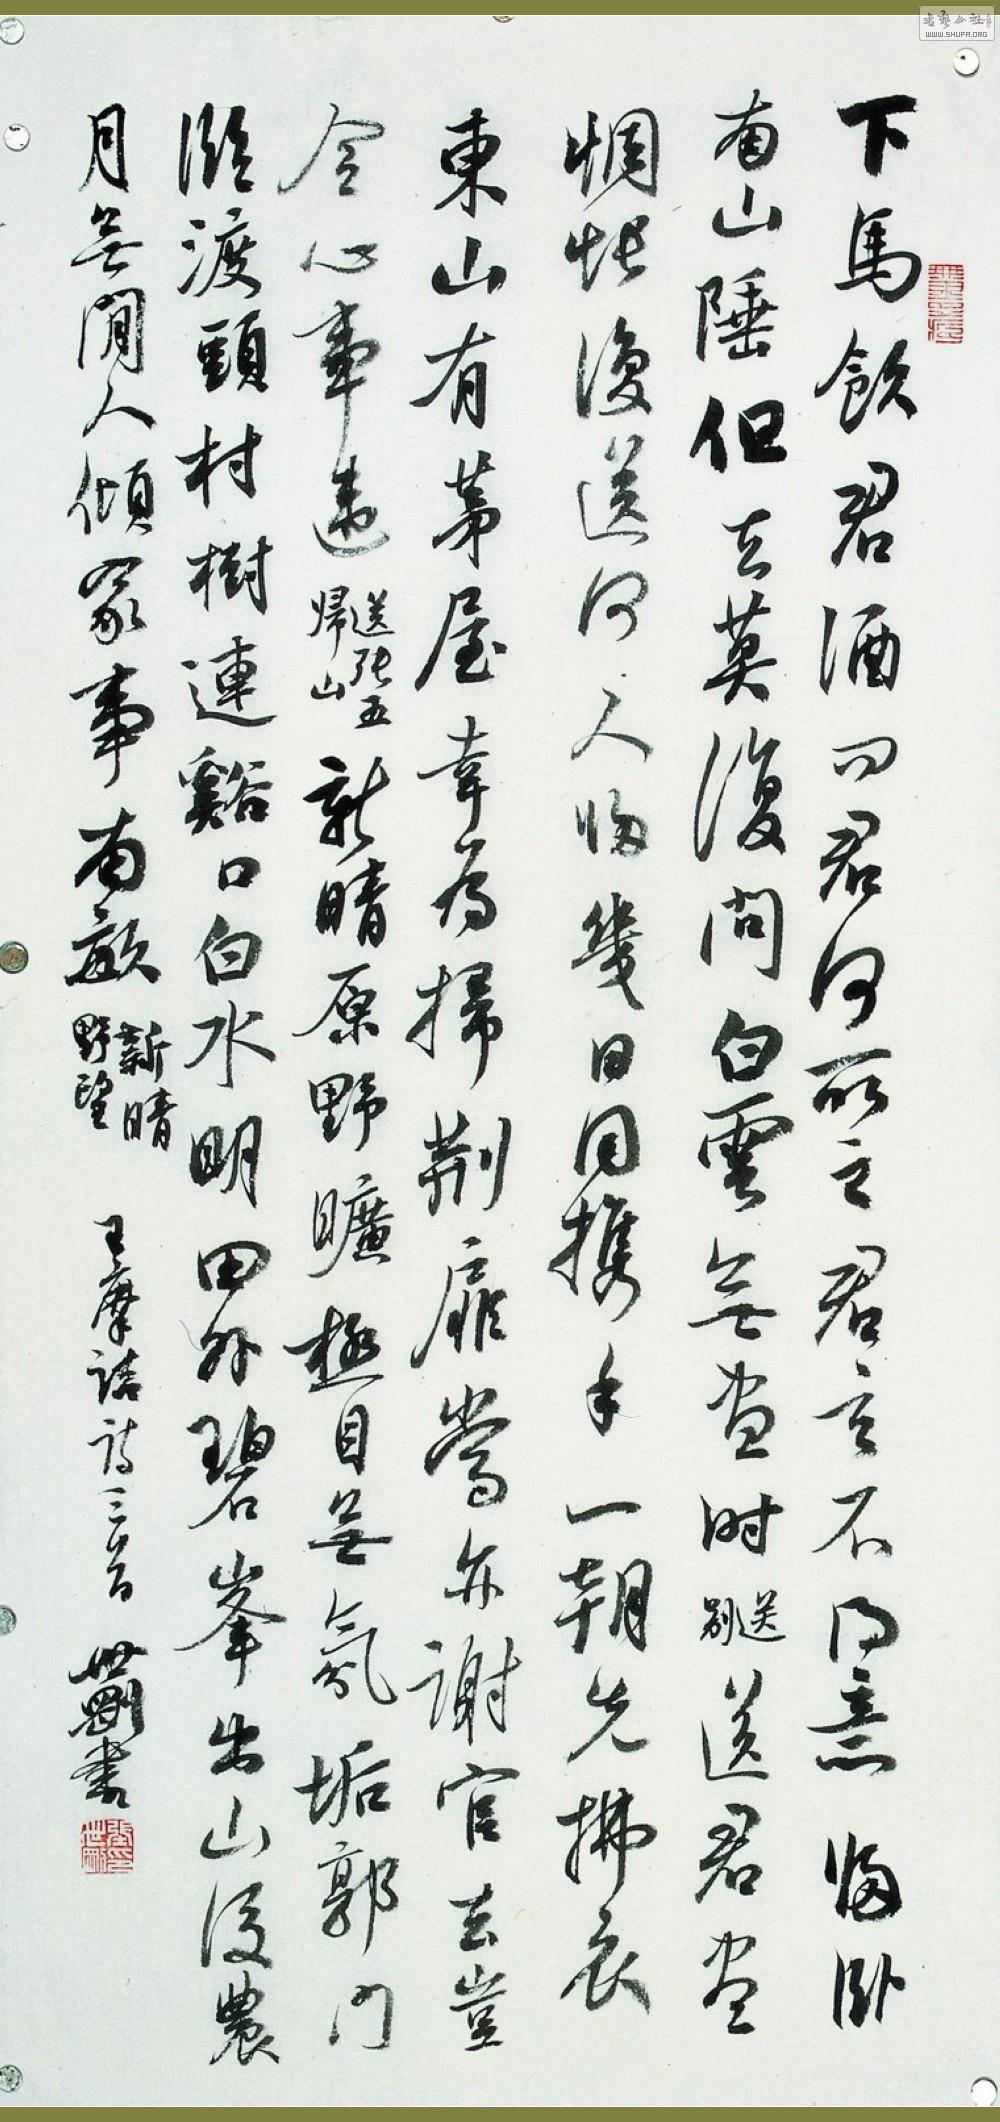 下馬飲君酒問君何所之君言不得意歸臥
南山陲但去莫復問白雲無盡時送別送君盡
惆悵復送何人歸幾日同携手一朝先拂衣
東山有茅屋幸為掃荆扉當亦謝官去豈
令心事違送張五歸山新晴原野曠極目無氛垢郭門
臨渡頭村樹連谿口白水明田外碧峯出山後農
月無閒人傾家事南畝新晴野望 王摩詰詩三首 世剛書
书艺公社
WWW.SHUFA.ORG